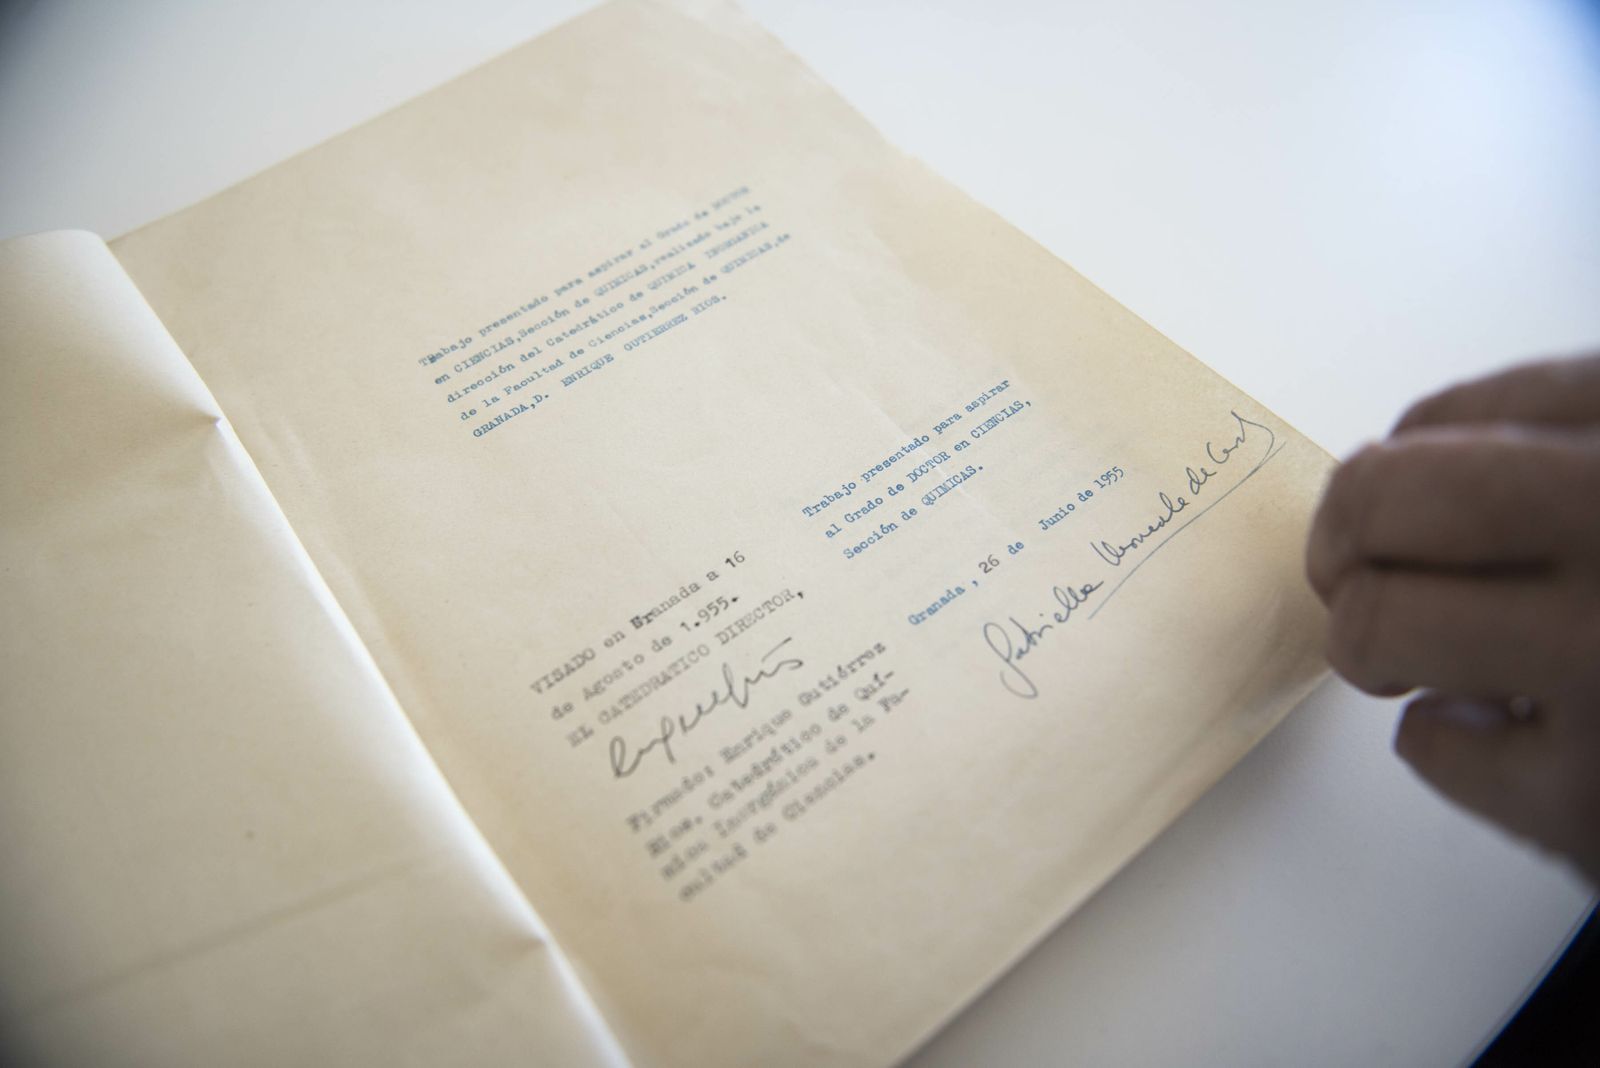 Trabajo presentado para aspirar al Grado de DOCTOR
en CIENCIAS,Sección de QUIMICAS,realizado bajo la
dirección del Catedrático de QUIMICA INORGANICA
de la Facultad de Ciencias,Sección de QUIMICAS,de
GRANADA,D. ENRIQUE GUTIERREZ RIOS.
Trabajo presentado para aspirar
al Grado de DOCTOR en CIENCIAS,
Sección de QUIMICAS.
Granada, 26 de Junio de 1955
VISADO en Granada a 16
de Agosto de 1.955.
EL CATEDRATICO DIRECTOR,
Firmado: Enrique Gutiérrez
Rios, Catedrático de Quí-
mica Inorgánica de la Fa-
cultad de Ciencias.